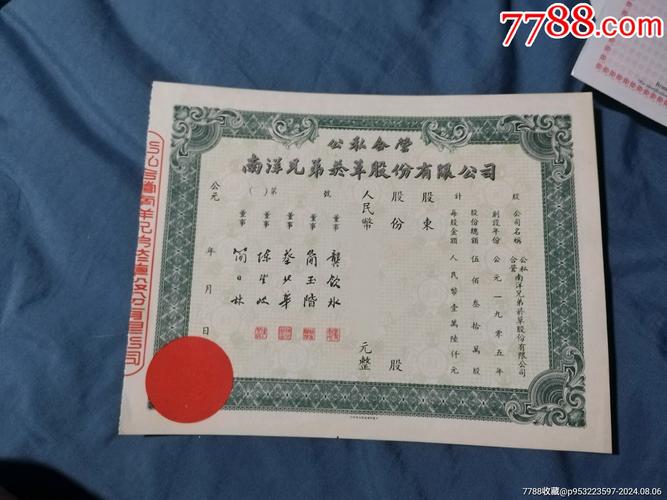 7788.com
公私合營
南洋兄弟菸草股份有限公司
( )第 號
公司名稱 公私合營 南洋兄弟菸草股份有限公司
創設年份 公元一九〇五年
股份總額 伍佰叁拾萬股
每股金額 人民幣壹萬陸仟元
計
股東
股份 股
人民幣 元整
董事 龔飲冰
董事 簡玉階
董事 蔡北華
董事
董事 簡日林
公元 年 月 日
7788收藏@p953223597-2024.08.06